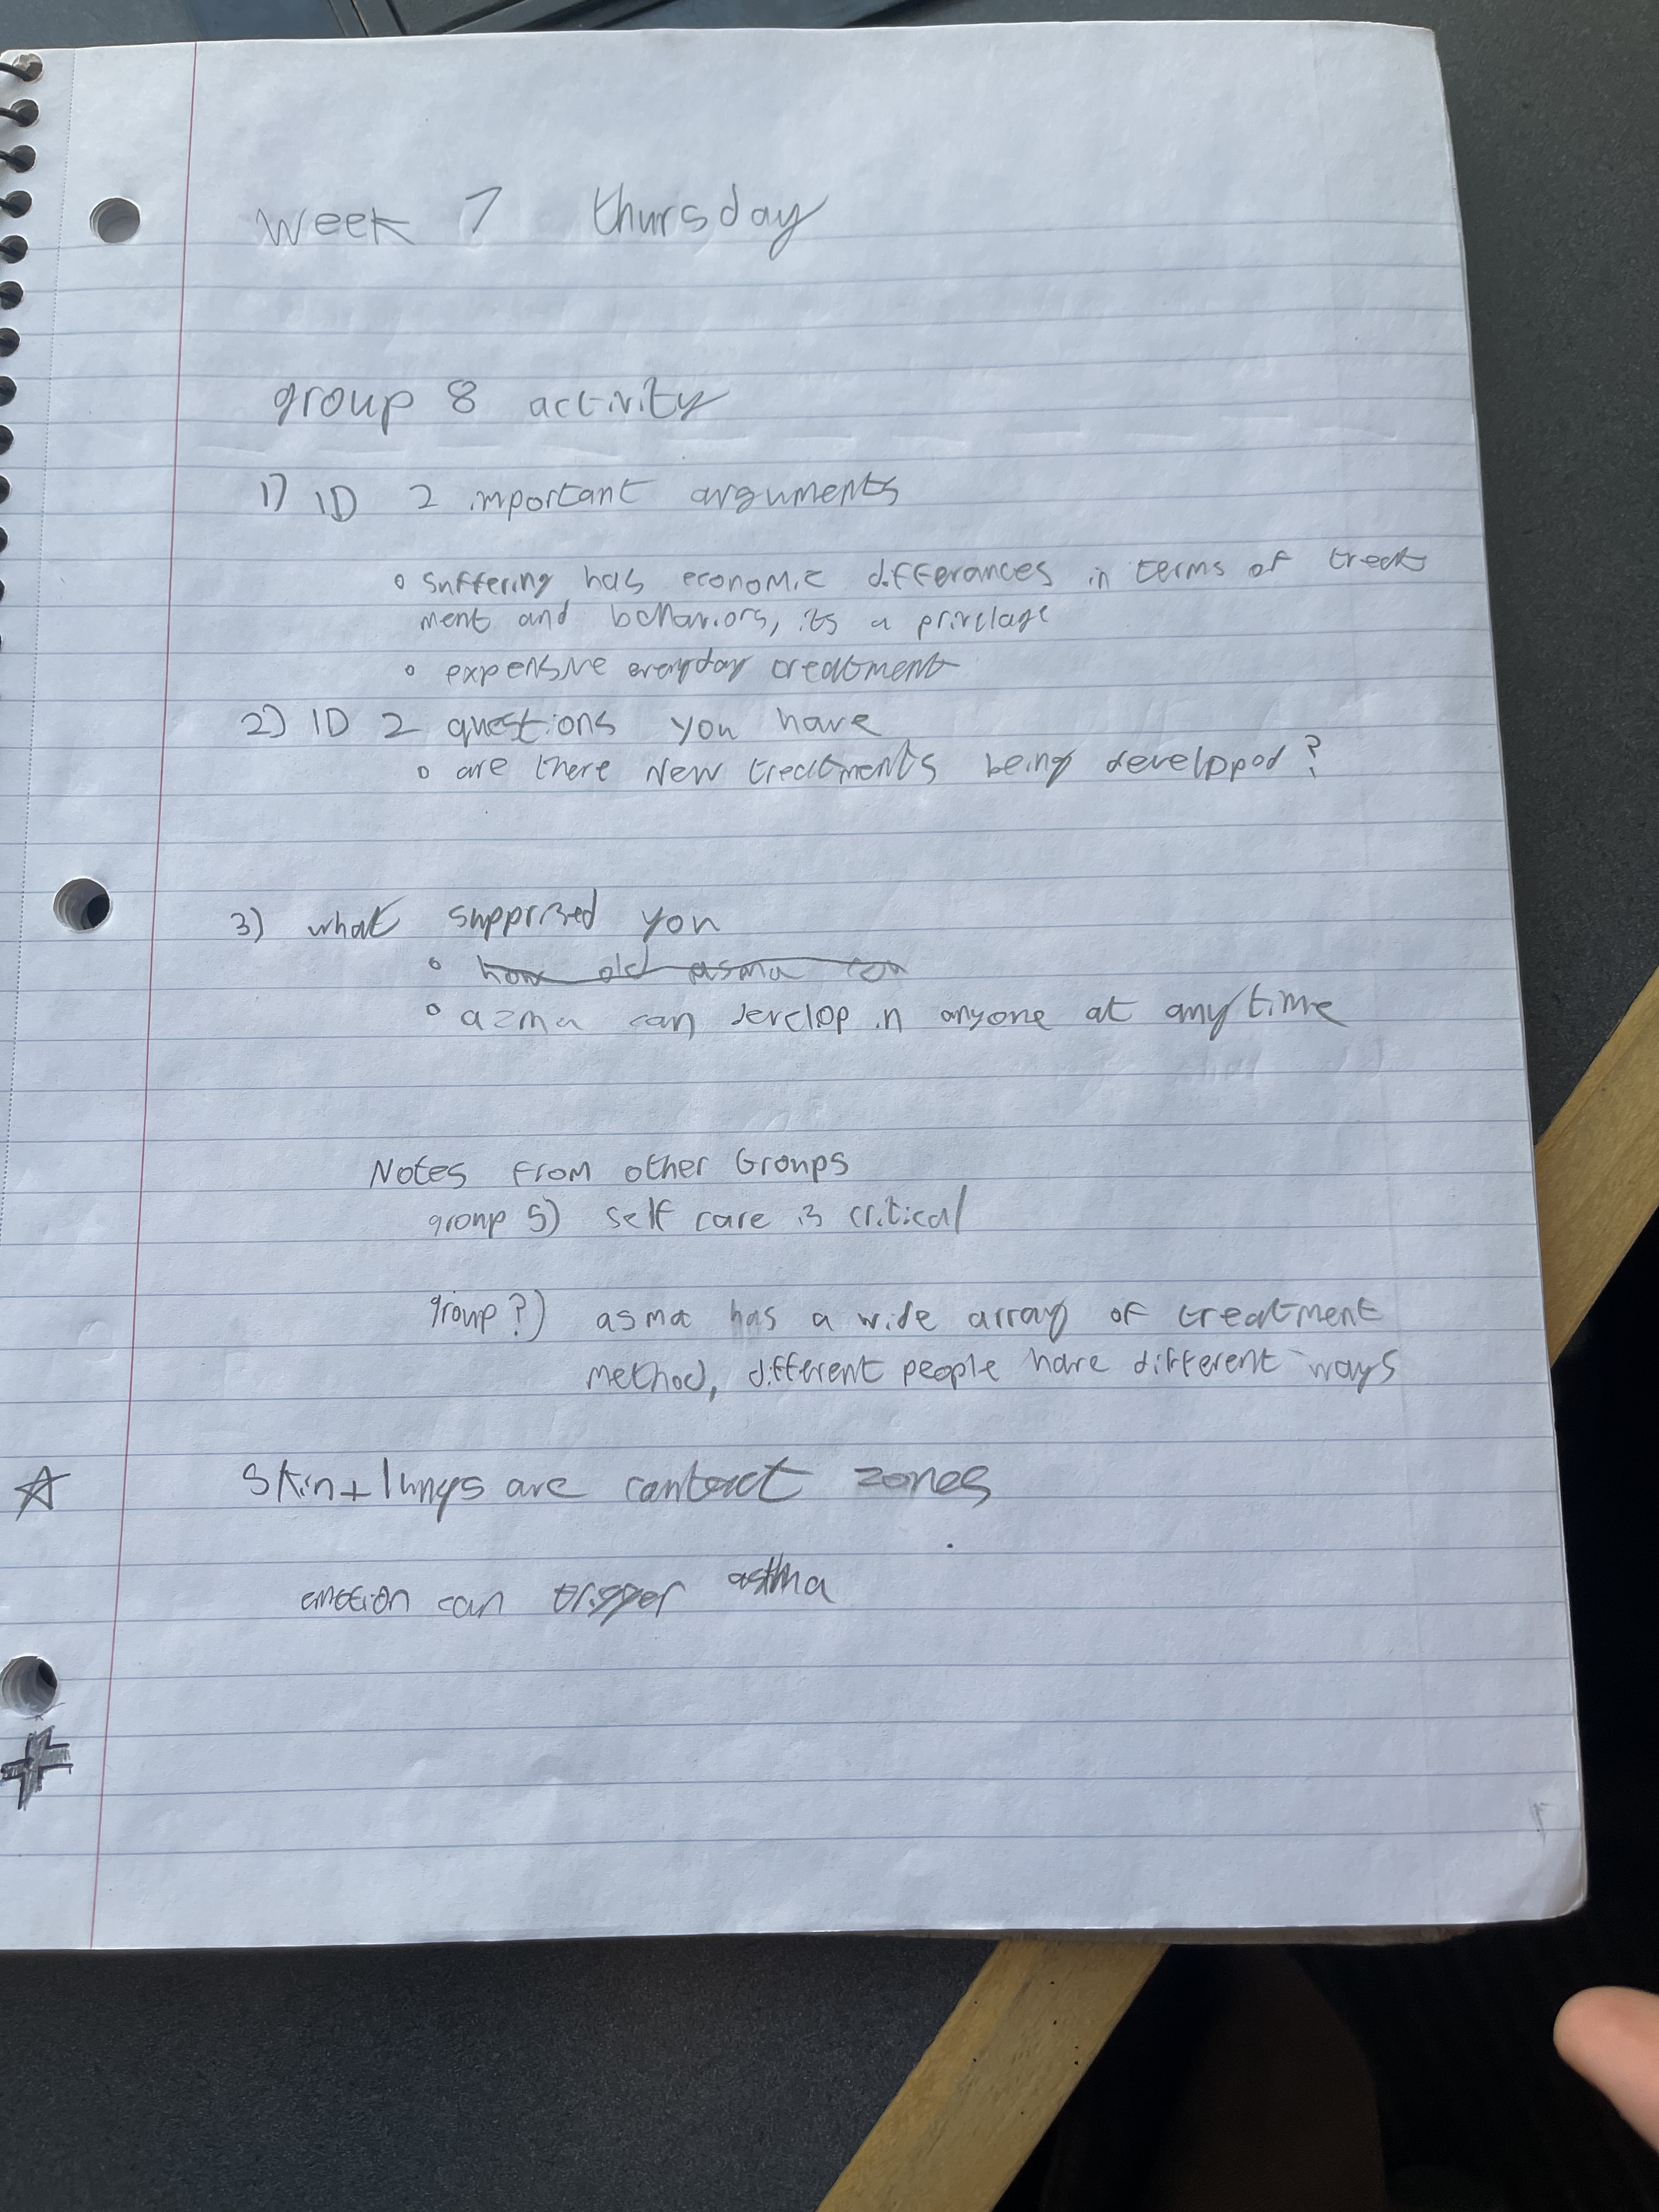 week 7 thursday
group 8 activity
1) ID 2 important arguments
◦ suffering has economic differances in terms of treat
ment and behaviors, its a privelage
◦ expensive everyday treatment
2) ID 2 questions you have
◦ are there New treatments being developped?
3) what supprized you
◦ how old asma can
◦ azma can develop in anyone at any time
Notes from other Groups
group 5) self care is critical
group ?) asma has a wide array of treatment
method, different people have different ways
☆ Skin + lungs are contact zones
emotion can trigger asthma